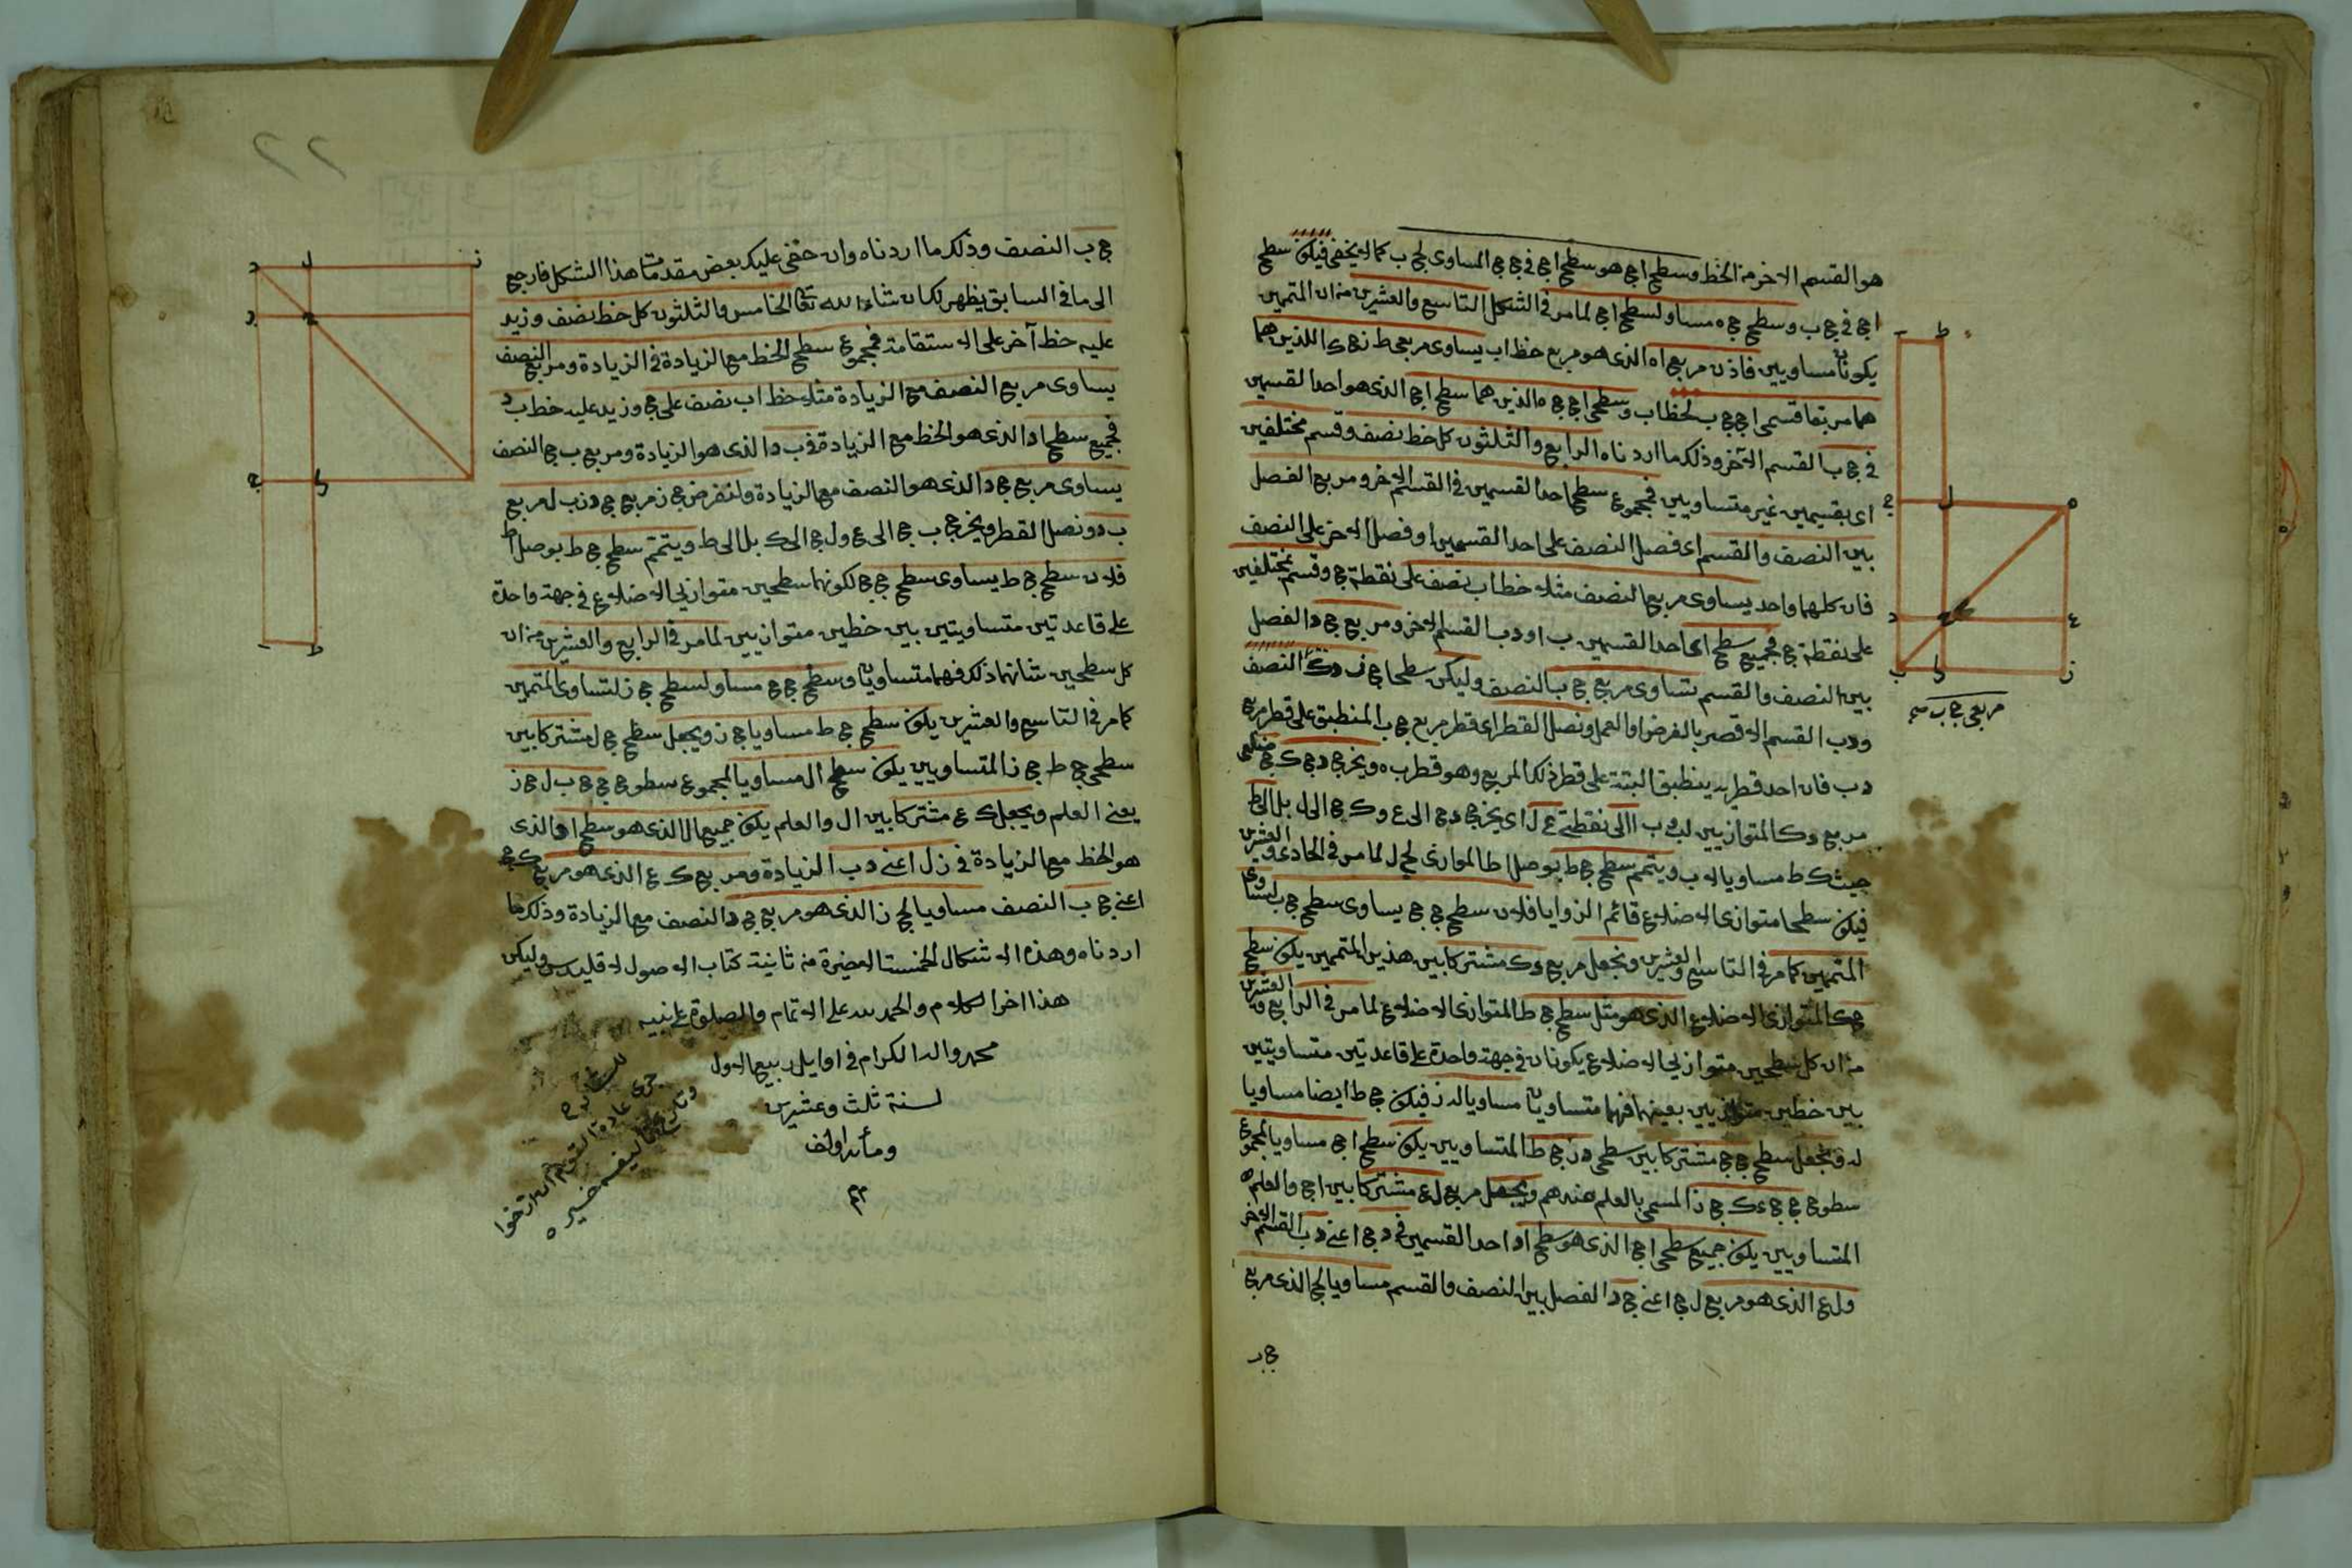 هو القسم الاخر من الخط وسطح ا ج هو سطح ا ج فى ج ج المساوى لج ب كما لا يخفى فيكون سطح
ا ج فى ج ب وسطح ج ه مساو لسطح ا ج لما مر فى الشكل التاسع والعشرين من ان المتممين
يكونان متساويين فاذن مربع ا ه الذى هو مربع خط ا ب يساوى مربعى ط ز ج ك اللذين هما
هما مربعا قسمى ا ج ج ب لخط ا ب وسطحى ا ج ج ه الذين هما سطح ا ج الذى هو احد القسمين
فى ج ب القسم الآخر وذلك ما اردناه الرابع والثلثون كل خط نصف وقسم مختلفين
اى بقسمين غير متساويين فمجموع سطح احد القسمين فى القسم الاخر ومربع الفصل
بين النصف والقسم اى فصل النصف على احد القسمين او فصل الاخر على النصف
فان كلهما واحد يساوى مربع النصف مثلا خط ا ب نصف على نقطة ج وقسم بمختلفين
على نقطة ج فجميع سطح اى احد القسمين ب ا و د ب القسم الاخر ومربع ج د الفصل
بين النصف والقسم يساوى مربع ج ب النصف وليكن سطحا ج ز د ك النصف
و د ب القسم الاقصر بالفرض او العمل ونصل القطر اى قطر مربع ج ب المنطبق على قطر مربع
د ب فان احد قطريه ينطبق البتة على قطر ذلك المربع وهو قطر ب ه ويخرج د ج ك ج ضلعى
مربع د ك المتوازيين لـ ب ا الى نقطتى ع ل اى يخرج د ج الى ع و ك ج الى ل بل الى ط
حيث ك ط مساويا لا ب ويتمم سطح ج ط بوصل ا ط الموازى لج ل لما مر فى الحادى والعشرين
فيكون سطحا متوازى الاضلاع قائم الزوايا فلان سطح ج ج يساوى سطح ج ب لتساوى
المتممين كما مر فى التاسع والعشرين ونجعل مربع د ك مشتركا بين هذين المتممين يكون سطح
ج ك المتوازى الاضلاع الذى هو مثل سطح ج ط المتوازى الاضلاع لما مر فى الرابع والعشرين
من ان كل سطحين متوازيى الاضلاع يكونان فى جهة واحدة على قاعدتين متساويتين
بين خطين متوازيين بعينهما فهما متساويان مساويا لد ز فيكون ج ط ايضا مساويا
له ونجعل سطح ج ج مشتركا بين سطحى د ز ج ط المتساويين يكون سطح ا ج مساويا لمجموع
سطوح ج ج د ك ج ز المسمى بالعلم عندهم ويجعل مربع ل ع مشتركا بين ا ج والعلم
المتساويين يكون جميع سطحى ا ج الذى هو سطح ا د احد القسمين فى د ج اعنى د ب القسم الاخر
و ل ع الذى هو مربع ل ج اعنى ج د الفصل بين النصف والقسم مساويا لج الذى مربع
ج ب
مربعى ج ب صح
ج ب النصف وذلك ما اردناه وان خفى عليك بعض مقدمات هذا الشكل فارجع
الى ما فى السابق يظهر لك ان شاء الله تعا الخامس والثلثون كل خط نصف وزيد
عليه خط آخر على الاستقامة فمجموع سطح الخط مع الزيادة فى الزيادة ومربع النصف
يساوى مربع النصف مع الزيادة مثلا خط ا ب نصف على ج وزيد عليه خط ب د
فجميع سطح ا د الذى هو الخط مع الزيادة فى ب د الذى هو الزيادة ومربع ب ج النصف
يساوى مربع ج د الذى هو النصف مع الزيادة ولنفرض ج ز مربع ج د ز ب ل مربع
ب د ونصل القطر ويخرج ب ج الى ع و ل ج الى ك بل الى ط ويتمم سطح ج ط بوصل ا ط
فلان سطح ج ط يساوى سطح ج ج لكونهما سطحين متوازيى الاضلاع فى جهة واحدة
على قاعدتين متساويتين بين خطين متوازيين لما مر فى الرابع والعشرين من ان
كل سطحين شانهما ذلك فهما متساويان وسطح ج ج مساو لسطح ج ز لتساوى المتممين
كما مر فى التاسع والعشرين يكون سطح ج ط مساويا ج ز ويجعل سطح ج ل مشتركا بين
سطحى ج ط ج ز المتساويين يكون سطح ا ل مساويا لمجموع سطوح ج ج ب ل ج ز
يعنى العلم ويجعل ك ع مشتركا بين ا ل والعلم يكون جميع ا ل الذى هو سطح ا د الذى
هو الخط مع الزيادة فى ز ل اعنى د ب الزيادة ومربع ك ع الذى هو مربع ك ج
اعنى ج ب النصف مساويا لج ز الذى هو مربع ج د النصف مع الزيادة وذلك ما
اردناه وهذه الاشكال الخمسة الاخيرة من ثانية كتاب الاصول لاقليدس وليكن
هذا اخر الكلام والحمد لله على الاتمام والصلوة على نبيه
محمد واله الكرام فى اوايل ربيع الاول
لسنة ثلث وعشرين
ومأة والف
تم
جرى عادة القوم ان ارخوا